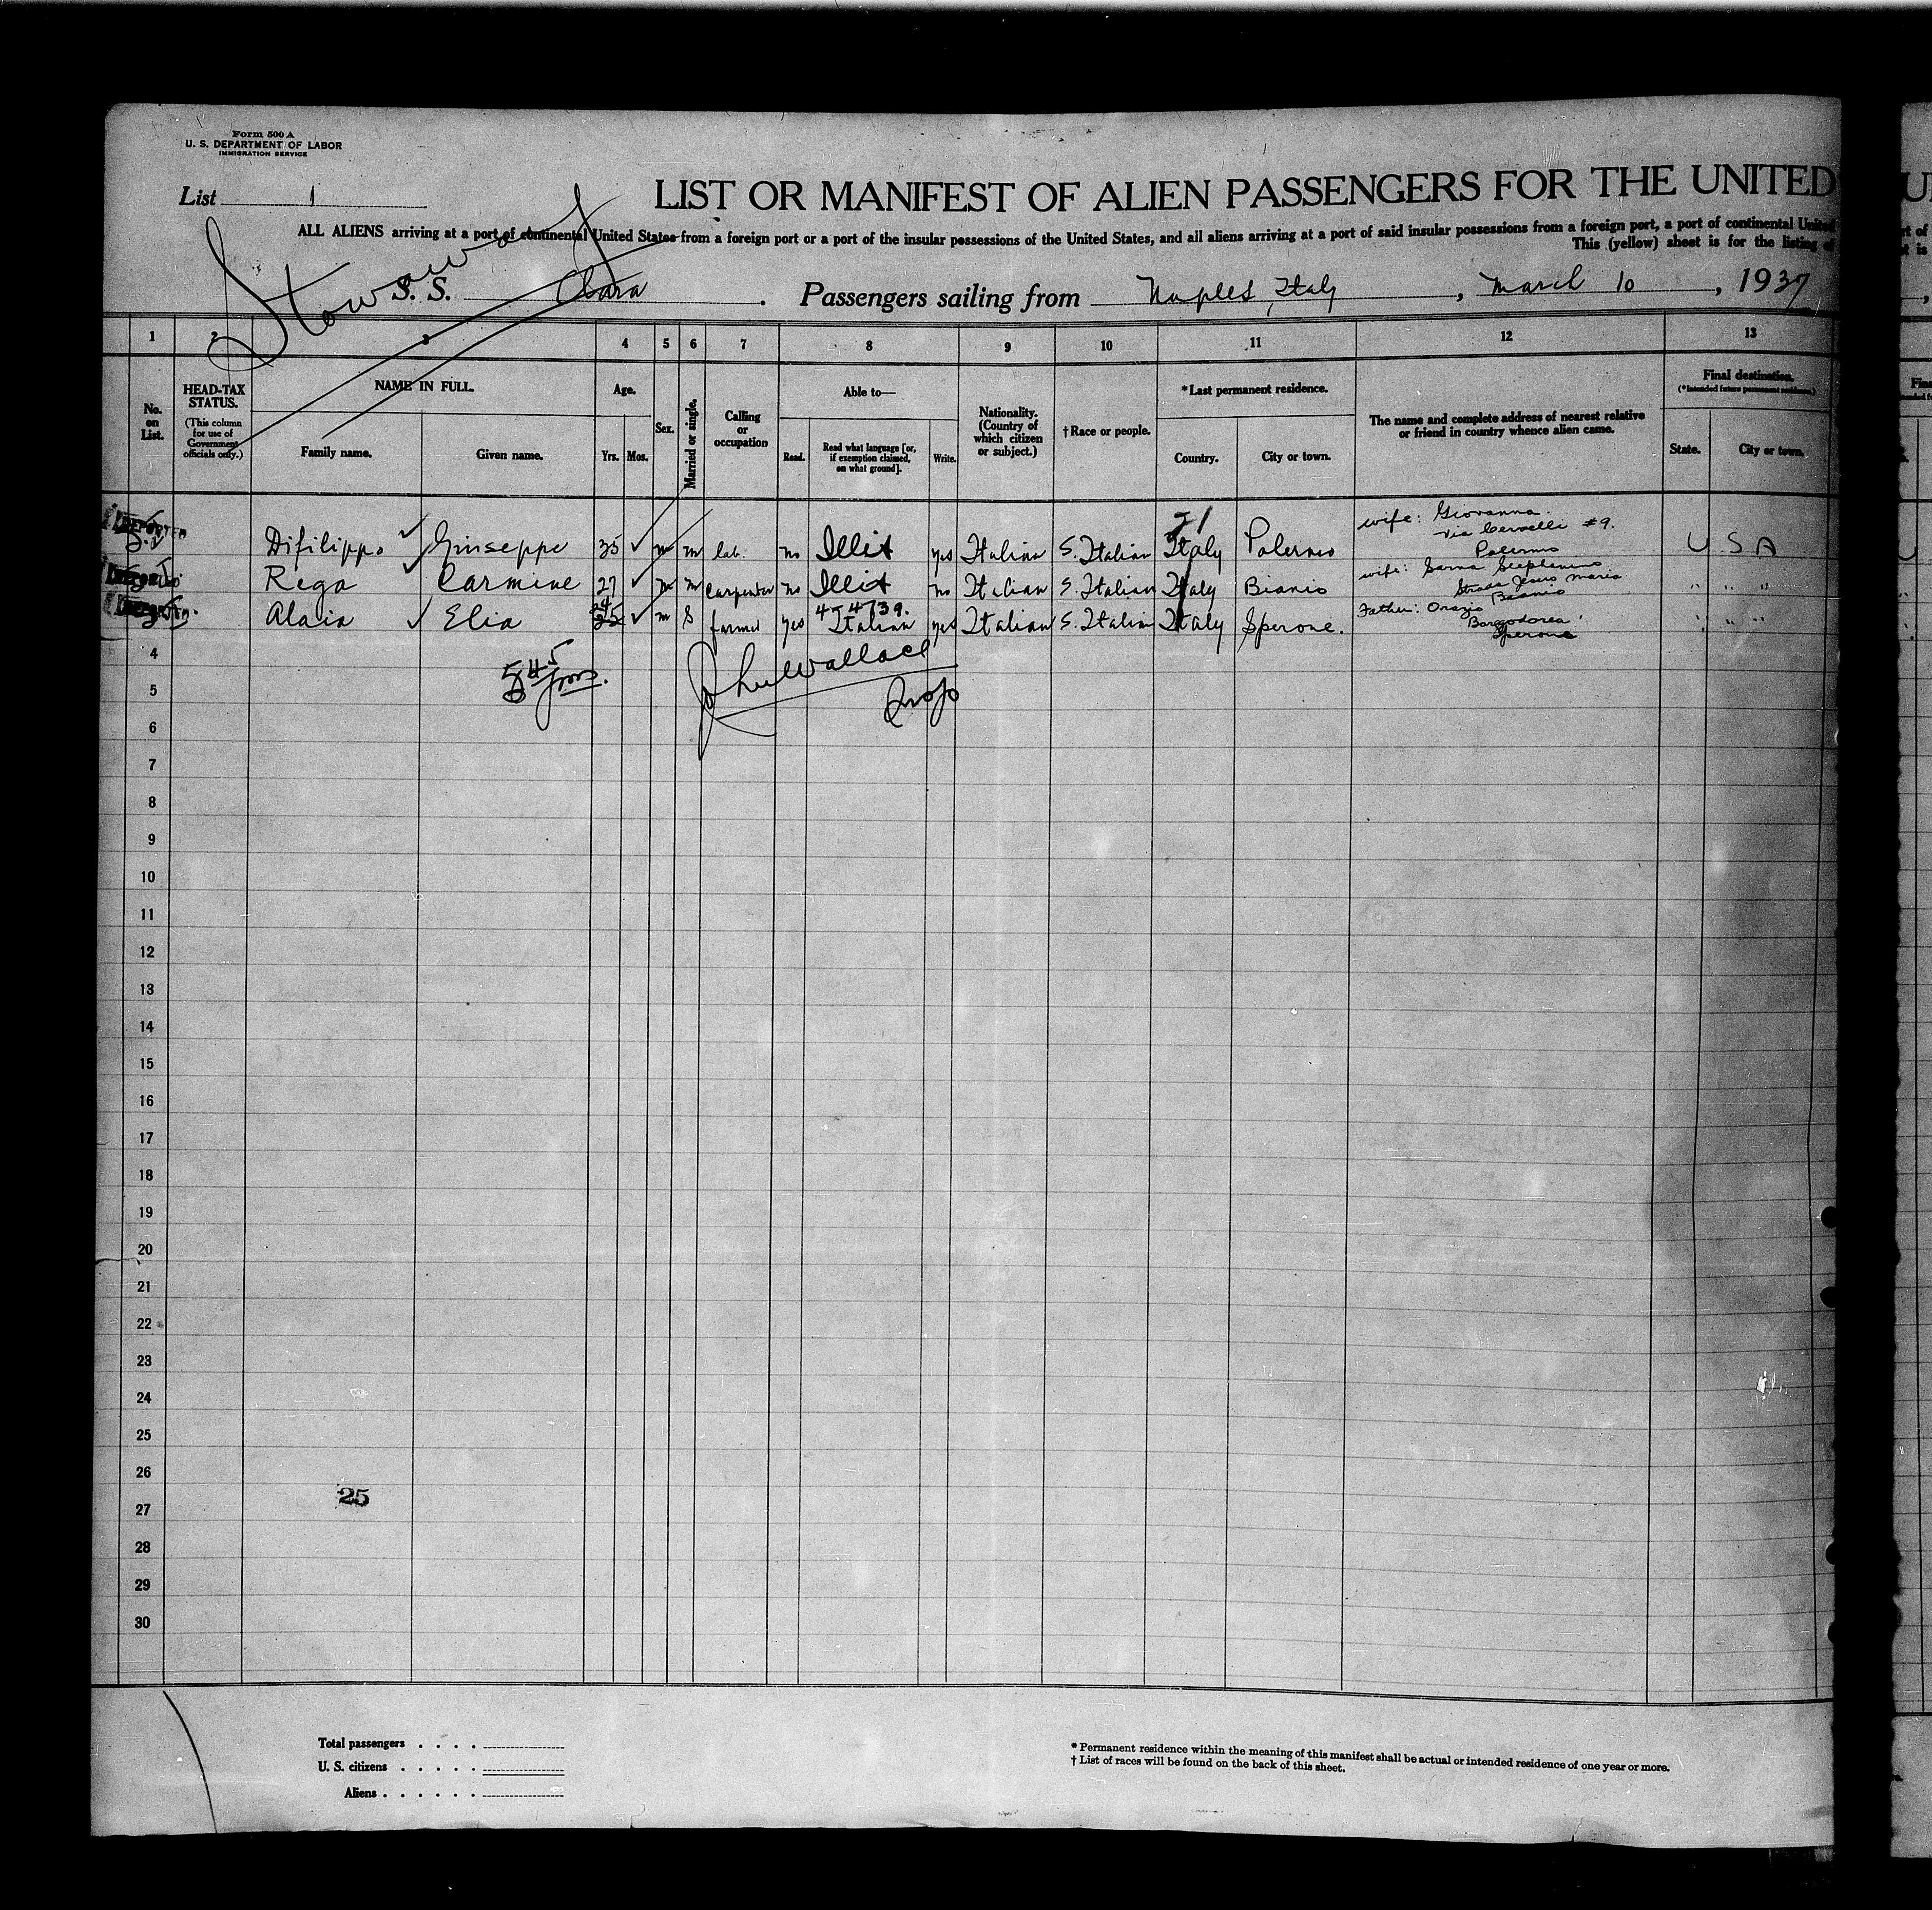 Form 500 A
U. S. DEPARTMENT OF LABOR
IMMIGRATION SERVICE
List 1
LIST OR MANIFEST OF ALIEN PASSENGERS FOR THE UNITED
ALL ALIENS arriving at a port of continental United States from a foreign port or a port of the insular possessions of the United States, and all aliens arriving at a port of said insular possessions from a foreign port, a port of continental United
This (yellow) sheet is for the listing of
Stowaways
S. S. Clara . Passengers sailing from Naples, Italy , March 10 , 1937
1 2 3 4 5 6 7 8 9 10 11 12 13
No. on List.
HEAD-TAX STATUS.
(This column for use of Government officials only.)
NAME IN FULL.
Family name.
Given name.
Age.
Yrs. Mos.
Sex.
Married or single.
Calling or occupation
Able to—
Read.
Read what language [or, if exemption claimed, on what ground].
Write.
Nationality. (Country of which citizen or subject.)
† Race or people.
* Last permanent residence.
Country.
City or town.
The name and complete address of nearest relative or friend in country whence alien came.
Final destination.
(* Intended future permanent residence.)
State.
City or town.
DEPORTED
Difilippo ✓ Giuseppe 35 ✓ m m lab. no Illit yes Italian S. Italian Italy Palermo wife: Giovanna. Via Cervelli #9. Palermo U S A
Rega ✓ Carmine 27 ✓ m m carpenter no Illit no Italian S. Italian Italy Bianio wife: Strada Jesus Maria Bianio " " "
Alaia ✓ Elia ✓ m S farmer yes Italian yes Italian S. Italian Italy Sperone. Father: Orazio Sperone " " "
4
545
John Wallace
5
Insp
6
7
8
9
10
11
12
13
14
15
16
17
18
19
20
21
22
23
24
25
26
25
27
28
29
30
Total passengers . . . .
U. S. citizens . . . . .
Aliens . . . . . .
* Permanent residence within the meaning of this manifest shall be actual or intended residence of one year or more.
† List of races will be found on the back of this sheet.